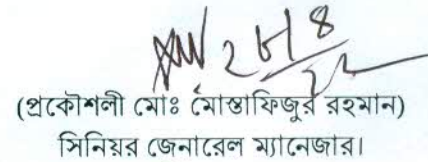 (প্রকৌশলী মোঃ মোস্তাফিজুর রহমান)
সিনিয়র জেনারেল ম্যানেজার।